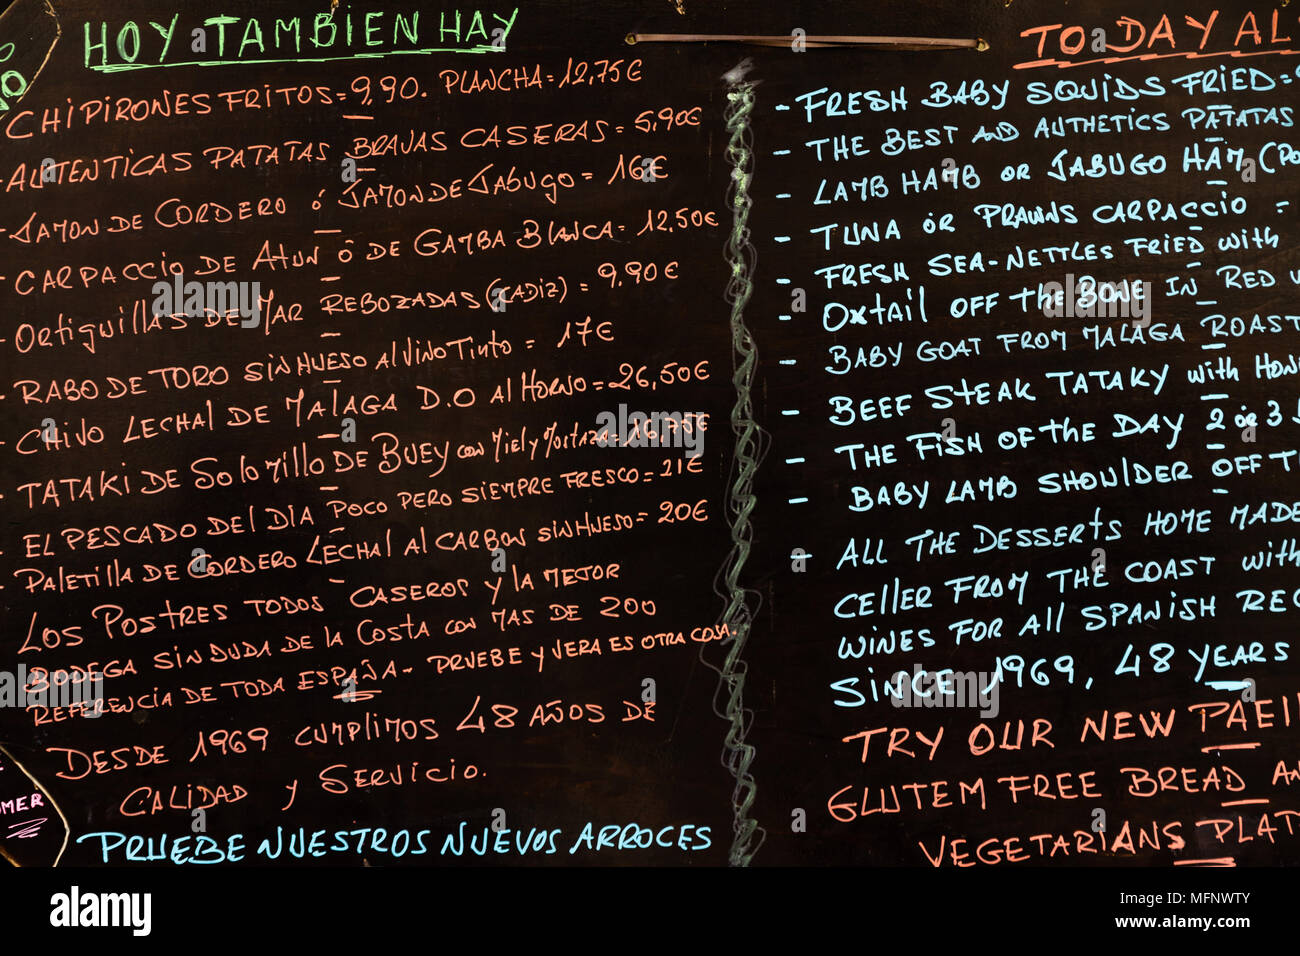 HOY TAMBIEN HAY
CHIPIRONES FRITOS = 9,90. PLANCHA = 12,75€
- AUTENTICAS PATATAS BRAVAS CASERAS = 5,90€
- JAMON DE CORDERO ó JAMON DE JABUGO = 16€
- CARPACCIO DE ATUN ó DE GAMBA BLANCA = 12,50€
- ORTIGUILLAS DE MAR REBOZADAS (CADIZ) = 9,90€
- RABO DE TORO SIN HUESO AL VINO TINTO = 17€
- CHIVO LECHAL DE MALAGA D.O AL HORNO = 26,50€
- TATAKI DE SOLOMILLO DE BUEY CON MIEL Y MOSTAZA = 16,75€
- EL PESCADO DEL DIA POCO PERO SIEMPRE FRESCO = 21€
- PALETILLA DE CORDERO LECHAL AL CARBON SIN HUESO = 20€
LOS POSTRES TODOS CASEROS Y LA MEJOR
BODEGA SIN DUDA DE LA COSTA CON MAS DE 200
REFERENCIA DE TODA ESPAÑA - PRUEBE Y VERA ES OTRA COSA.
DESDE 1969 CUMPLIMOS 48 AÑOS DE
CALIDAD Y SERVICIO.
PRUEBE NUESTROS NUEVOS ARROCES
TODAY AL
- FRESH BABY SQUIDS FRIED =
- THE BEST AND AUTHETICS PATATAS
- LAMB HAMB OR JABUGO HAM (
- TUNA OR PRAWNS CARPACCIO =
- FRESH SEA-NETTLES FRIED WITH
- OXTAIL OFF THE BONE IN RED
- BABY GOAT FROM MALAGA ROAST
- BEEF STEAK TATAKY WITH
- THE FISH OF THE DAY 2 OR 3
- BABY LAMB SHOULDER OFF
- ALL THE DESSERTS HOME MADE
CELLER FROM THE COAST WITH
WINES FOR ALL SPANISH
SINCE 1969, 48 YEARS
TRY OUR NEW
GLUTEM FREE BREAD
VEGETARIANS
OMER
alamy
Image ID: MFNWTY
www.alamy.com